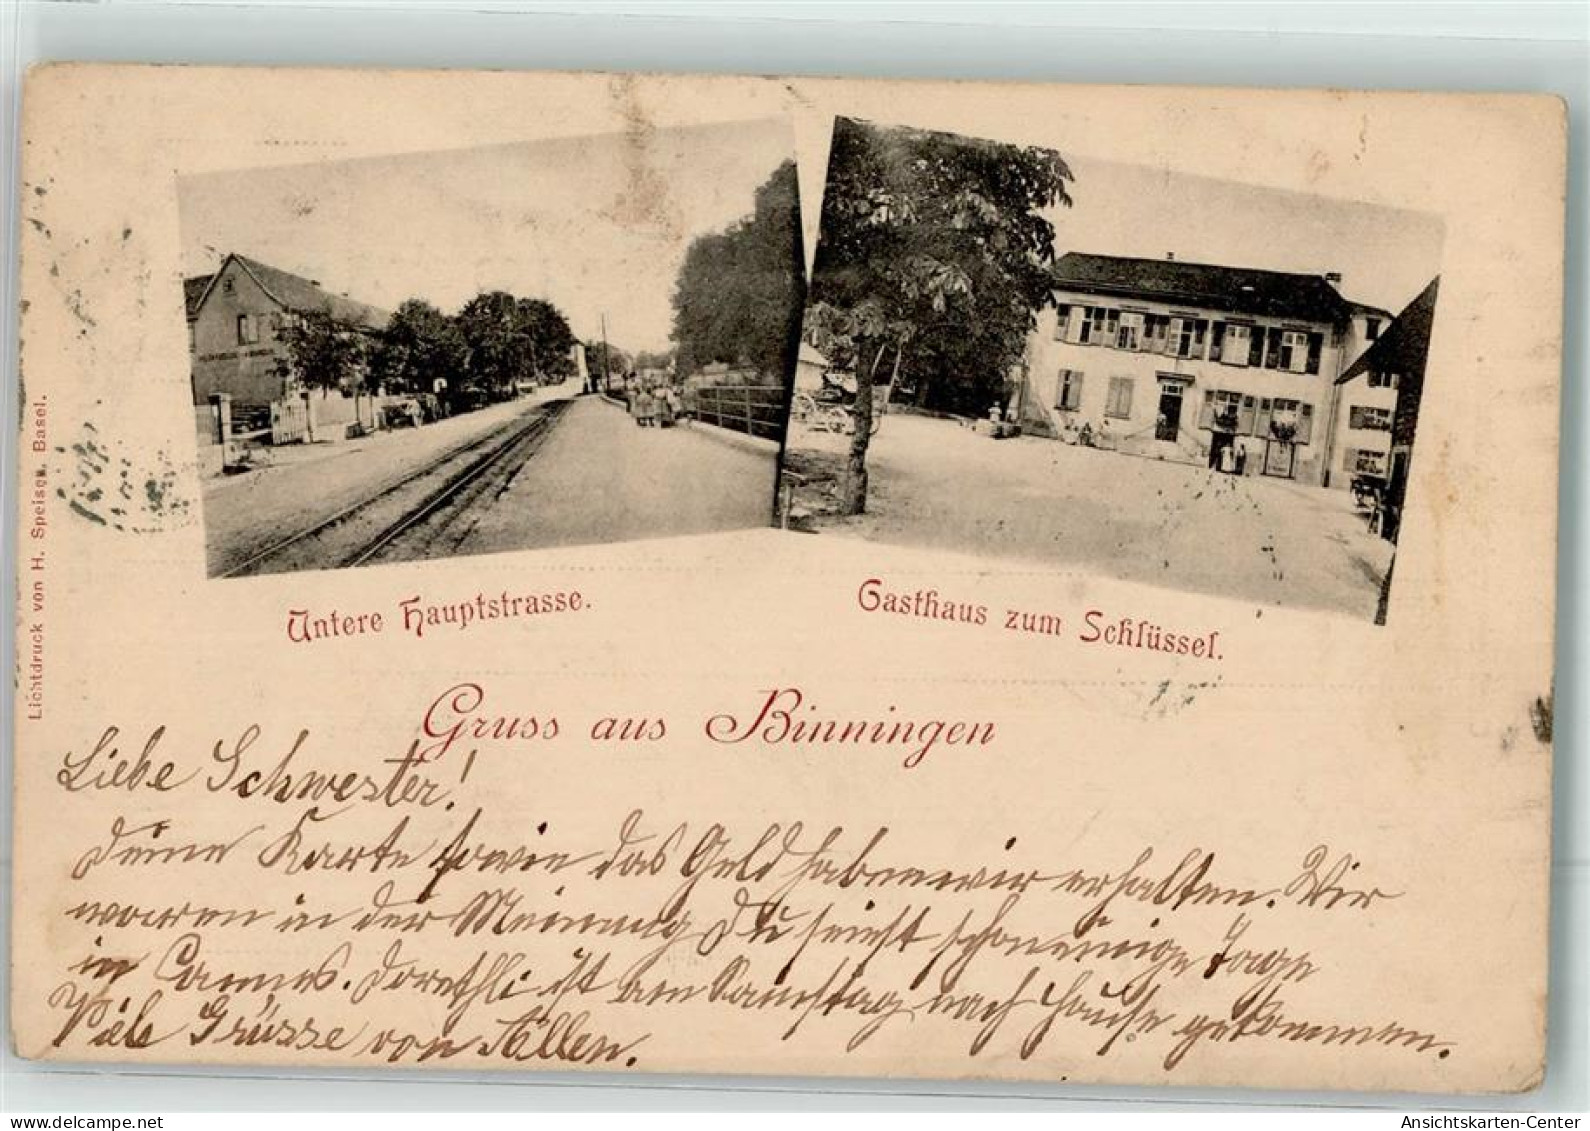 Lichtdruck von H. Speiser, Basel.
Untere Hauptstrasse.
Gasthaus zum Schlüssel.
Gruss aus Binningen
Liebe Schwester!
Deine Karte sowie das Geld haben wir erhalten. Wir
waren in der Meinung Du seiest schon einige Tage
in Cannes. Dorethli ist am Samstag nach Hause gekommen.
Viele Grüsse von Allen.
www.delcampe.net
Ansichtskarten-Center